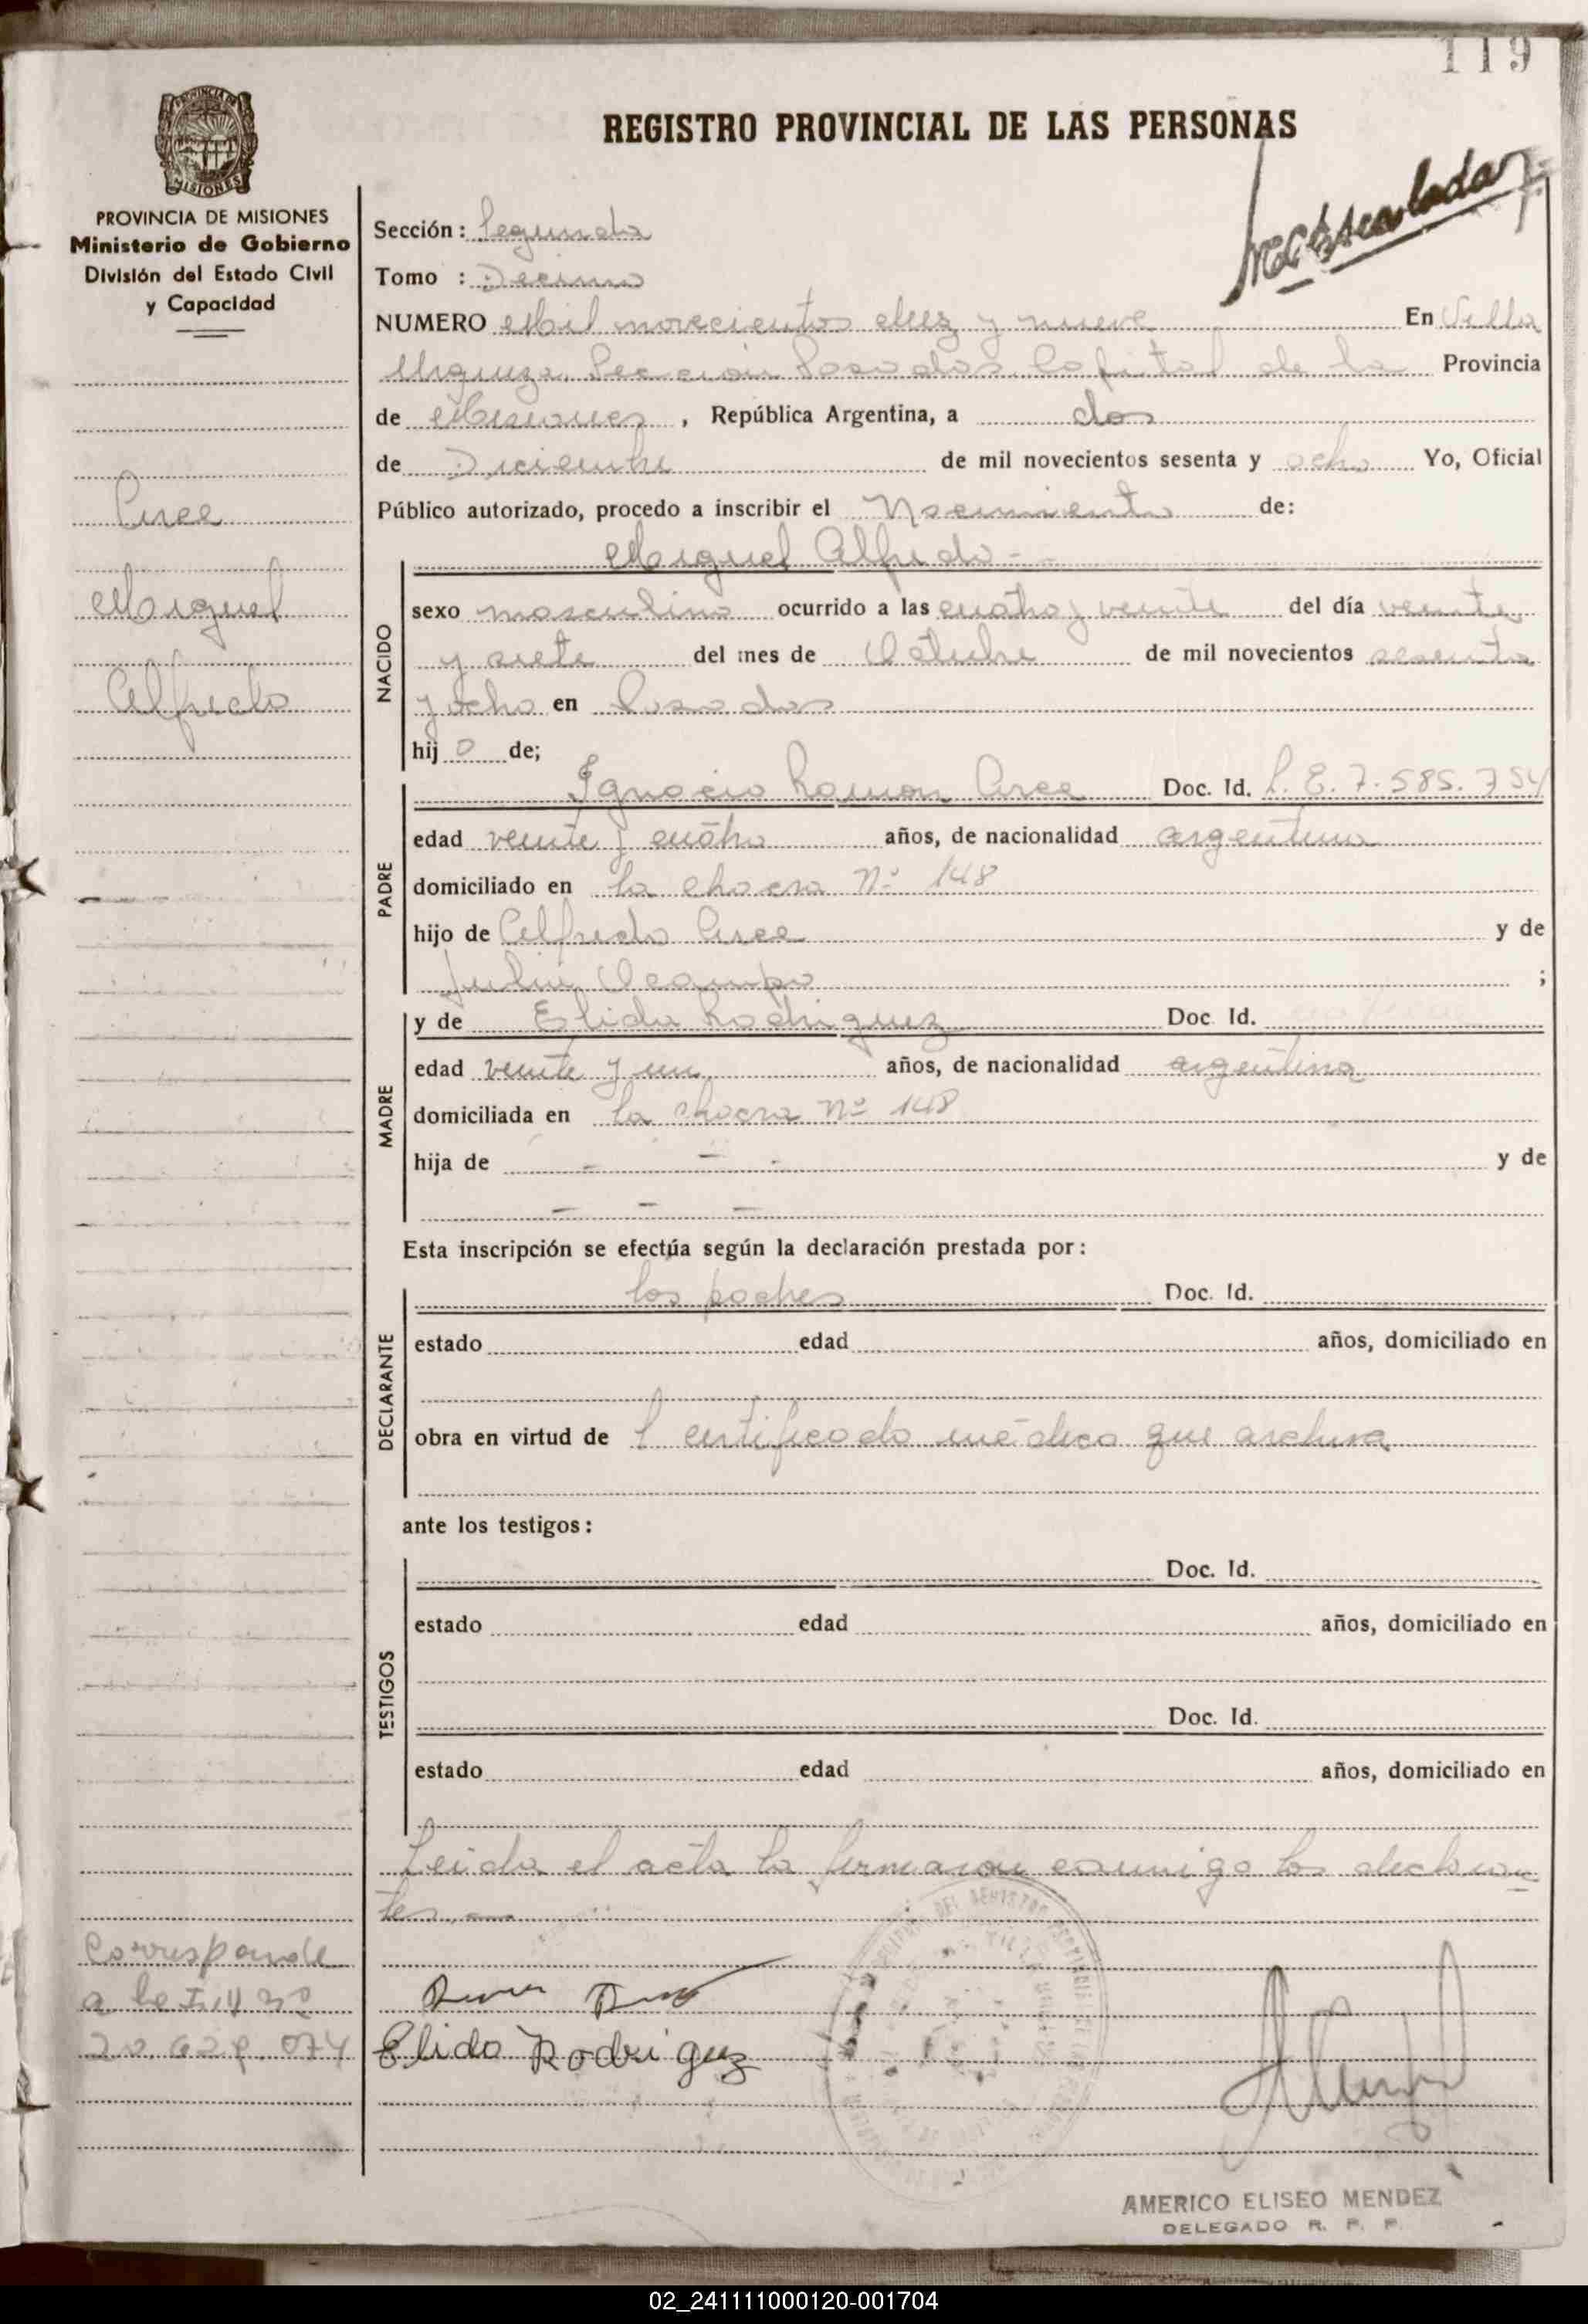 119
REGISTRO PROVINCIAL DE LAS PERSONAS
PROVINCIA DE MISIONES
Ministerio de Gobierno
División del Estado Civil
y Capacidad
Sección: Segunda
Tomo : Decimo
NUMERO Mil novecientos diez y nueve En Villa
Urquiza, Seccion Posadas Capital de la Provincia
de Misiones, República Argentina, a dos
de Diciembre de mil novecientos sesenta y ocho Yo, Oficial
Público autorizado, procedo a inscribir el Nacimiento de:
Arce
Miguel
Alfredo
NACIDO
Miguel Alfredo
sexo masculino ocurrido a las cuatro y veinte del día veinte
y siete del mes de Octubre de mil novecientos sesenta
y ocho en Posadas
hij o de;
PADRE
Ignacio Ramon Arce Doc. Id. L.E. 7.585.754
edad veinte y cuatro años, de nacionalidad argentina
domiciliado en la chacra Nº 148
hijo de Alfredo Arce y de
Julia Ocampo ;
MADRE
y de Elida Rodriguez Doc. Id.
edad veinte y un años, de nacionalidad argentina
domiciliada en la chacra Nº 148
hija de - - - y de
- - -
Esta inscripción se efectúa según la declaración prestada por:
DECLARANTE
los padres Doc. Id.
estado edad años, domiciliado en
obra en virtud de l certificado médico que archiva
ante los testigos:
TESTIGOS
Doc. Id.
estado edad años, domiciliado en
Doc. Id.
estado edad años, domiciliado en
Leida el acta la firmaron conmigo los declaran
tes.
Corresponde
a la
Elida Rodriguez
AMERICO ELISEO MENDEZ
DELEGADO R. P. P.
02_241111000120-001704